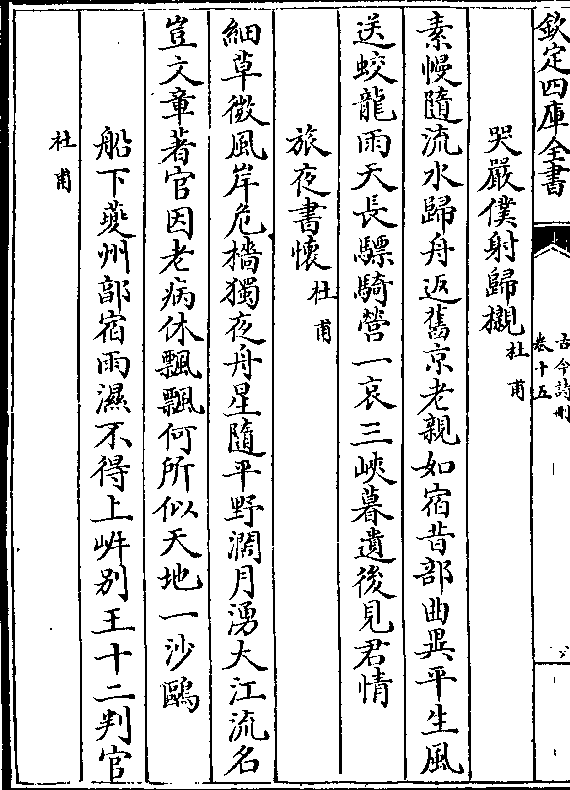 欽定四庫全書
古今詩刪
卷十五
哭嚴僕射歸櫬杜甫
素幔隨流水歸舟返舊京老親如宿昔部曲異平生風
送蛟龍雨天長驃騎營一哀三峽暮遺後見君情
旅夜書懷杜甫
細草微風岸危檣獨夜舟星隨平野濶月湧大江流名
豈文章著官因老病休飄飄何所似天地一沙鷗
船下夔州郭宿雨濕不得上岸別王十二判官
杜甫